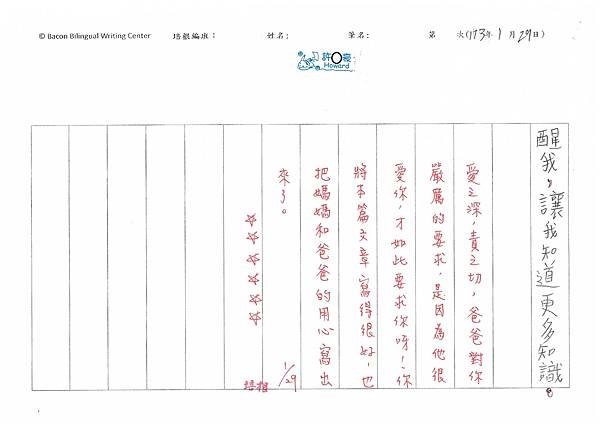 © Bacon Bilingual Writing Center 培根編班： 姓名： 筆名： 第 次(113年1月29日)
許〇豪
Howard
醒我，讓我知道更多知識。
愛之深，責之切，爸爸對你
嚴厲的要求，是因為他很
愛你，才如此要求你呀！你
將本篇文章寫得很好，也
把媽媽和爸爸的用心寫出
來了。
☆☆☆☆☆☆
1/29